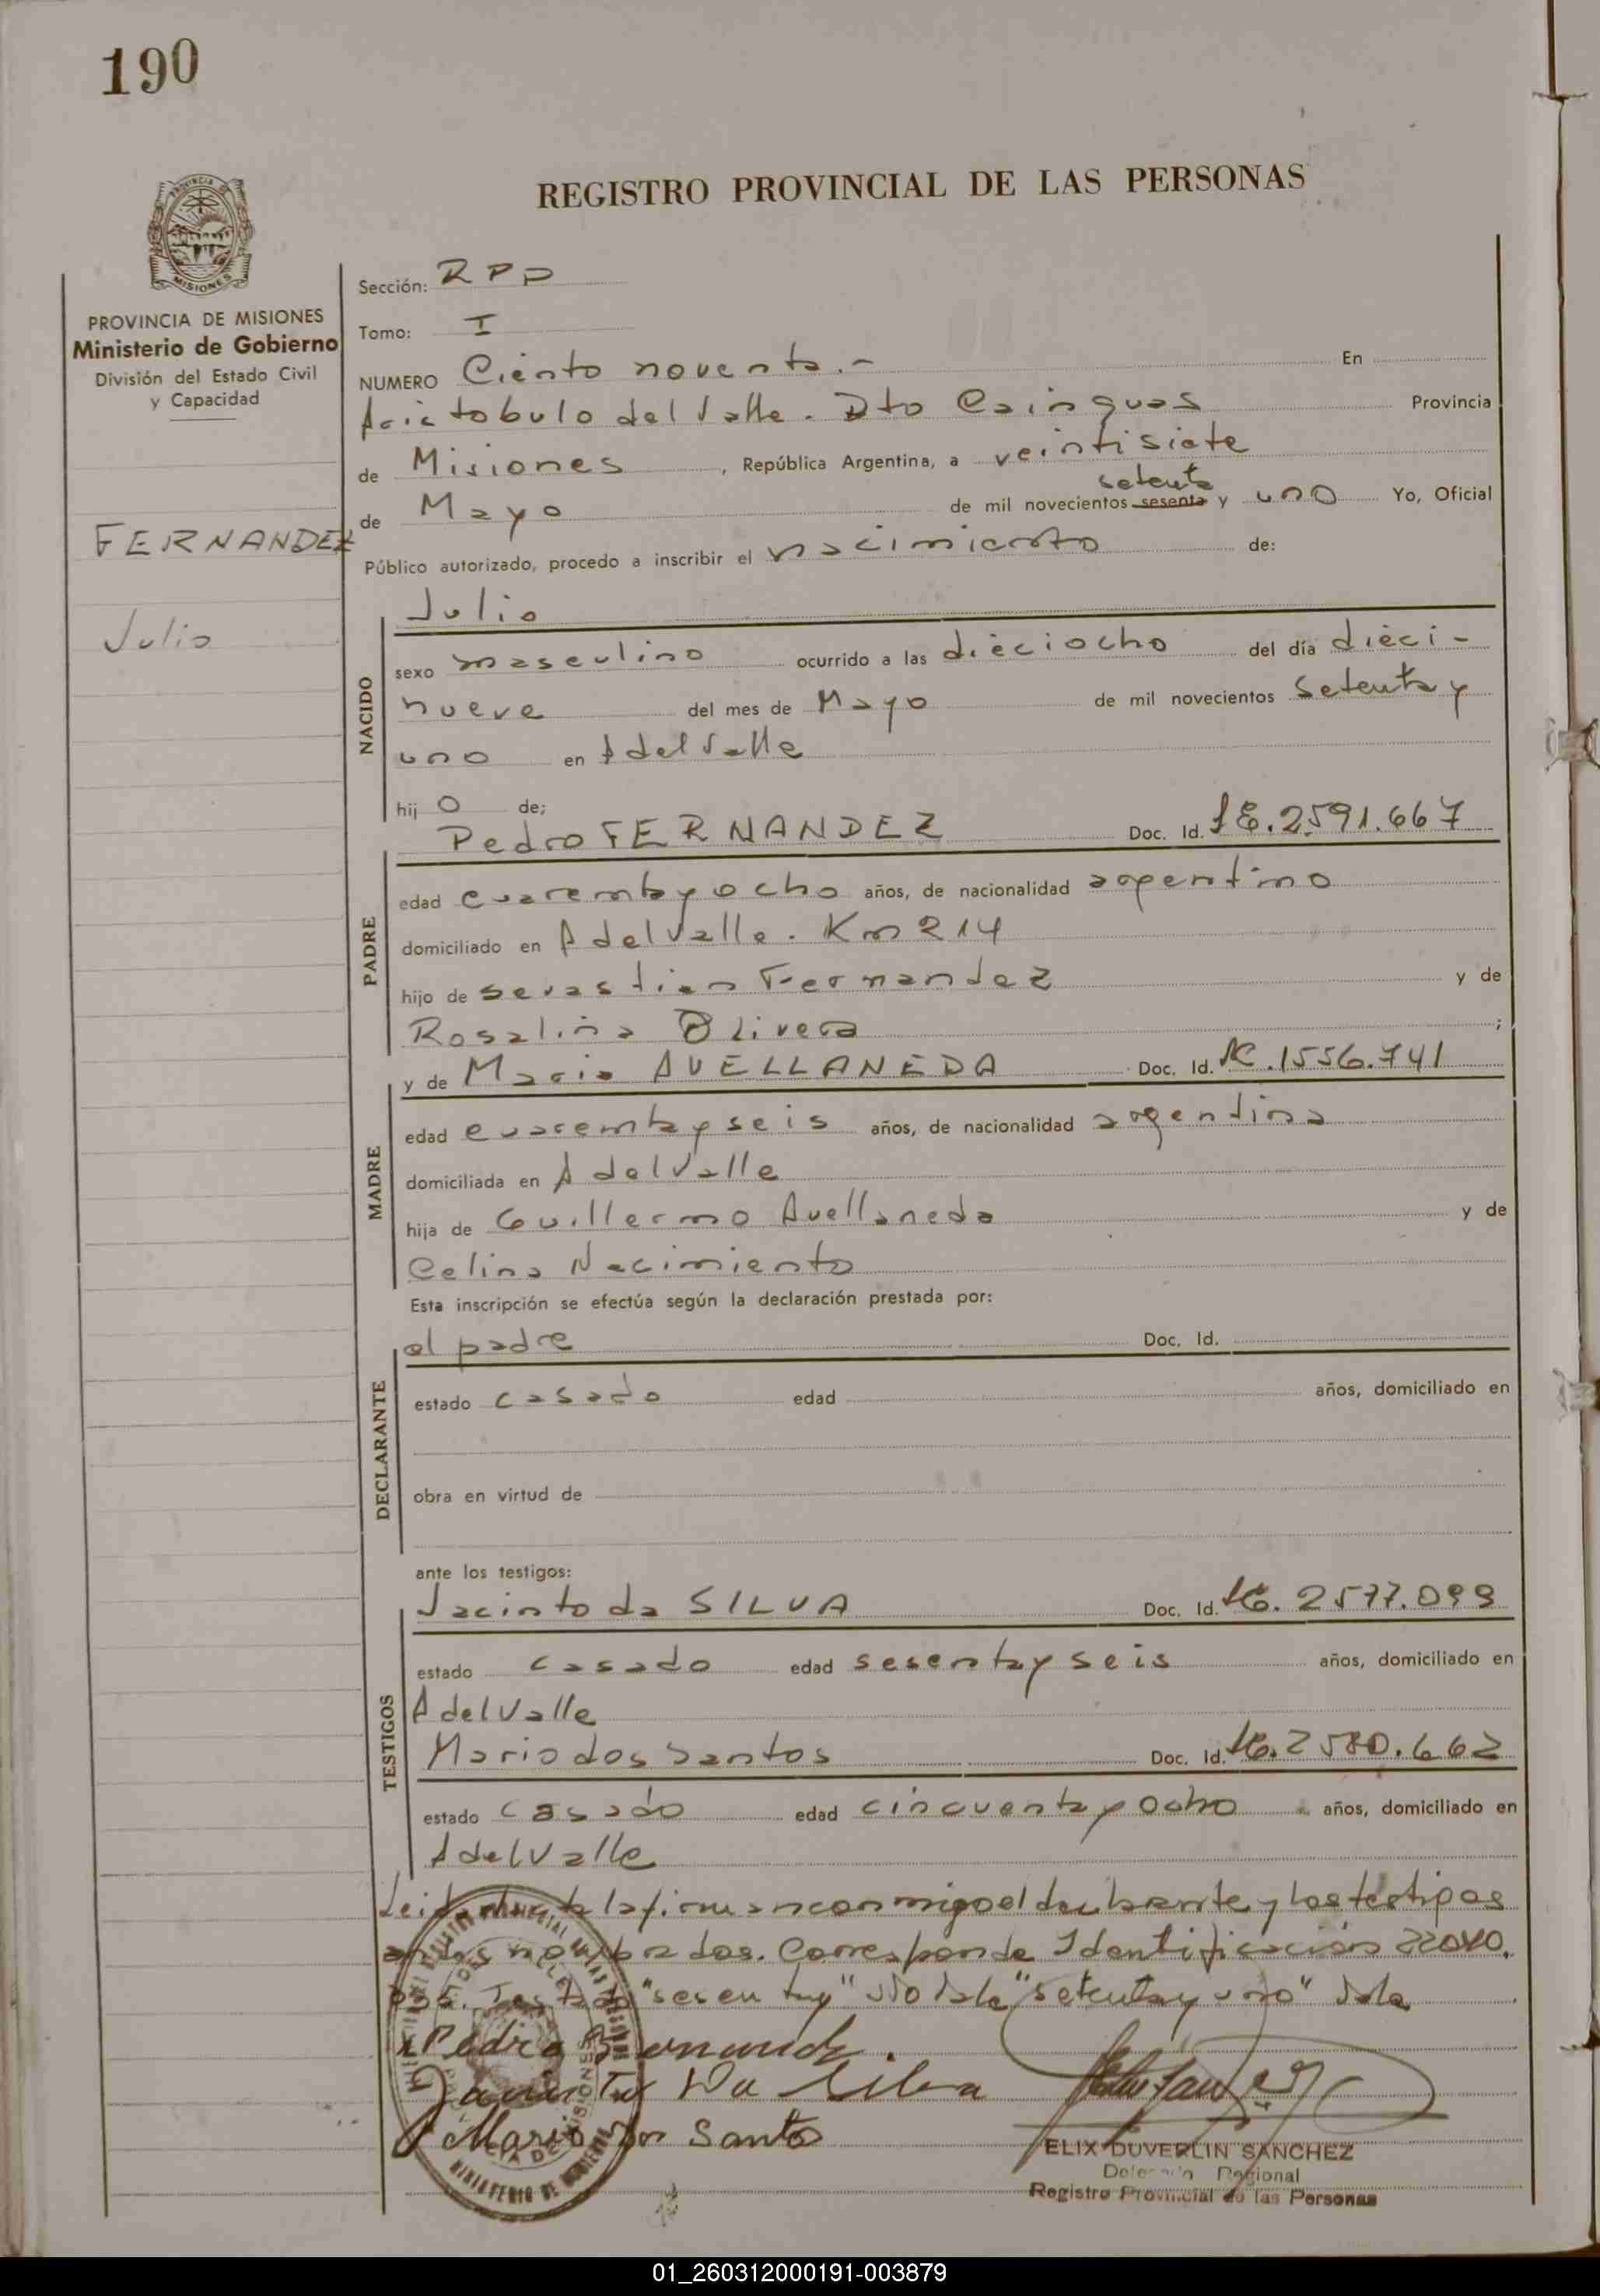 190
REGISTRO PROVINCIAL DE LAS PERSONAS
PROVINCIA DE MISIONES
Ministerio de Gobierno
División del Estado Civil
y Capacidad
FERNANDEZ
Julio
Sección: RPP
Tomo: I
NUMERO Ciento noventa.- En
Aristobulo del Valle. Dto Cainguas Provincia
de Misiones, República Argentina, a veintisiete
setenta
de Mayo de mil novecientos sesenta y uno Yo, Oficial
Público autorizado, procedo a inscribir el nacimiento de:
NACIDO
Julio
sexo masculino ocurrido a las dieciocho del día dieci-
nueve del mes de Mayo de mil novecientos setenta y
uno en A del Valle
hij o de;
PADRE
Pedro FERNANDEZ Doc. Id. 2.591.667
edad cuarenta y ocho años, de nacionalidad argentino
domiciliado en A del Valle. Km 214
hijo de Sevastian Fernandez y de
Rosalina Olivera ;
MADRE
y de Maria AVELLANEDA Doc. Id. 1556.741
edad cuarenta y seis años, de nacionalidad argentina
domiciliada en A del Valle
hija de Guillermo Avellaneda y de
Celina Nacimiento
Esta inscripción se efectúa según la declaración prestada por:
DECLARANTE
el padre Doc. Id.
estado casado edad años, domiciliado en
obra en virtud de
ante los testigos:
TESTIGOS
Jacinto da SILVA Doc. Id. 2577.099
estado casado edad sesenta y seis años, domiciliado en
A del Valle
Mario dos Santos Doc. Id. 2580.662
estado casado edad cincuenta y ocho años, domiciliado en
A del Valle
Leida el acta la firman conmigo el declarante y los testigos
antes nombrados. Corresponde Identificación
Testado "sesenta y" No Vale "setenta y uno" Vale
Pedro Fernandez.
Jacinto Da Silva
Mario dos Santo
ELIX DUVERLIN SANCHEZ
Delegado Regional
Registro Provincial de las Personas
01_260312000191-003879